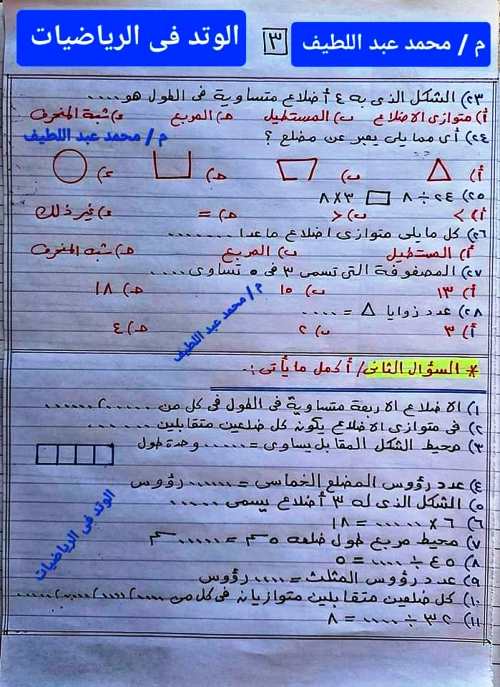 م / محمد عبد اللطيف
٣
الوتد فى الرياضيات
٢٣) الشكل الذى به ٤ أضلاع متساوية فى الطول هو.....
أ) متوازى الاضلاع ب) المستطيل ج) المربع د) شبة المنحرف
م/ محمد عبد اللطيف
٢٤) أى مما يلى يعبر عن مضلع ؟
أ) ب) ج) د)
٢٥) ٢٤ ÷ ٨ ٣ × ٨
أ) > ب) < ج) = د) غير ذلك
٢٦) كل مايلى متوازى اضلاع ماعدا ........
أ) المستطيل ب) المربع ج) شبه المنحرف
٢٧) المصفوفة التى تسمى ٣ فى ٥ تساوى .....
أ) ١٣ ب) ١٥ ج) ١٨
٢٨) عدد زوايا = .....
أ) ٣ ب) ٢ ج) ٤
م/ محمد عبد اللطيف
* السؤال الثانى / أكمل ما يأتى :-
١) الاضلاع الاربعة متساوية فى الطول فى كل من ......،......
٢) فى متوازى الاضلاع يكون كل ضلعين متقابلين ......
٣) محيط الشكل المقابل يساوى = ...... وحدة طول
٤) عدد رؤوس المضلع الخماسى = ...... رؤوس
٥) الشكل الذى له ٣ أضلاع يسمى ......
٦) ٦ × ...... = ١٨
٧) محيط مربع طول ضلعه ٥ سم = ...... سم
٨) ٤٥ ÷ ..... = ٥
٩) عدد رؤوس المثلث = ..... رؤوس
١٠) كل ضلعين متقابلين متوازيان فى كل من .....،.....،.....
١١) ٣٢ ÷ ..... = ٨
الوتد فى الرياضيات